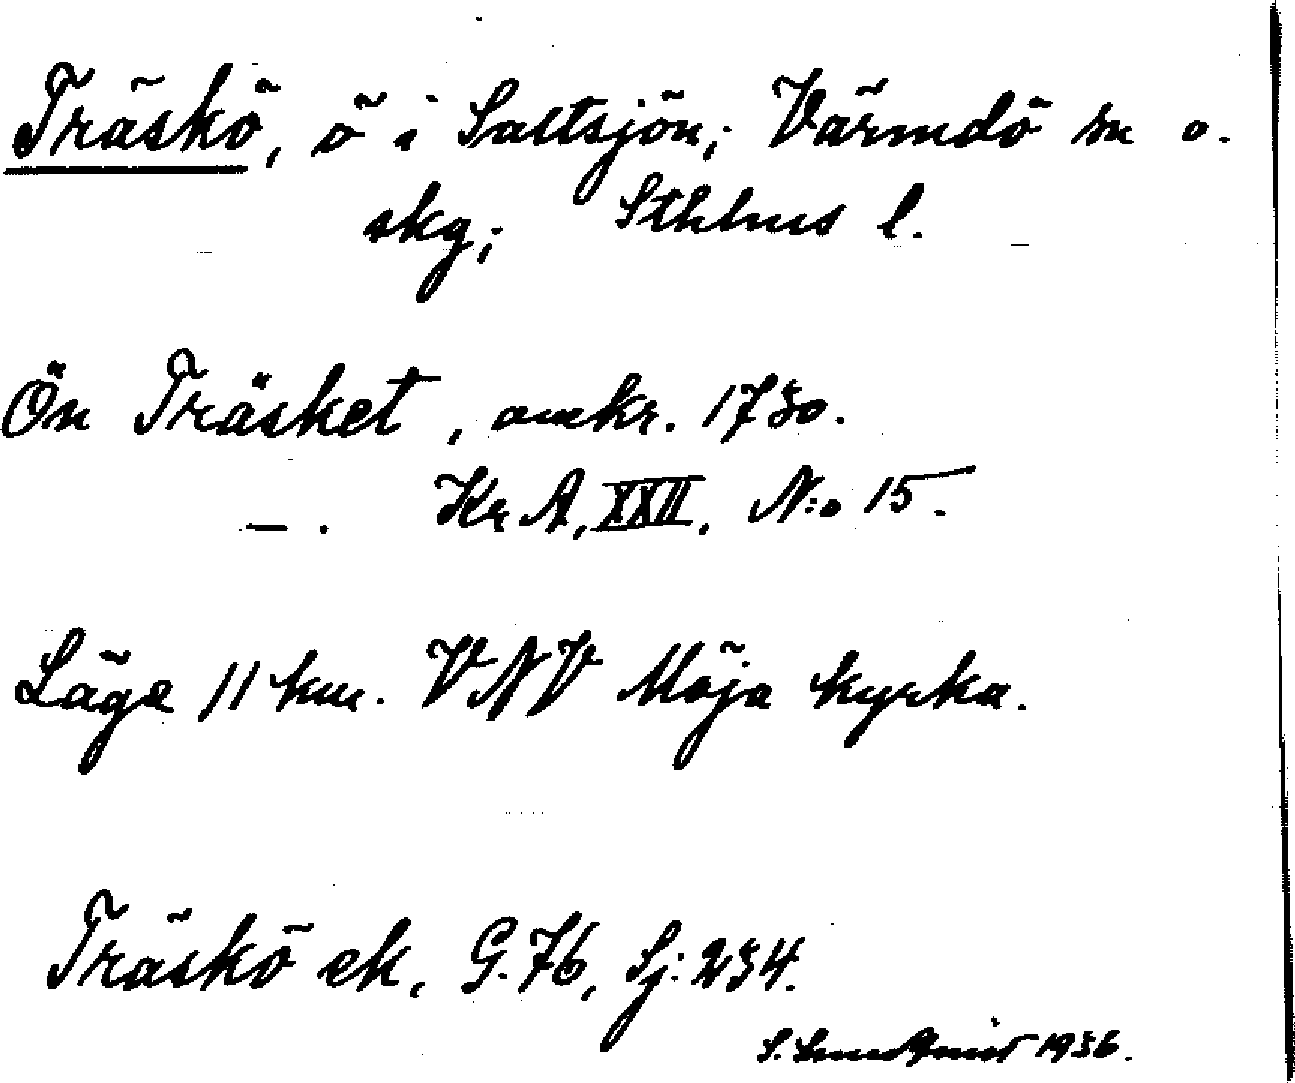 Träskö, ö i Saltsjön; Värmdö sn o.
skg; Sthlms l.
Ön Träsket, omkr. 1730.
— . Kr A, XXII. N:o 15.
Läge 11 km. VNV Möja kyrka.
Träskö ek, G. 76, Sj: 234.
S. 1936.